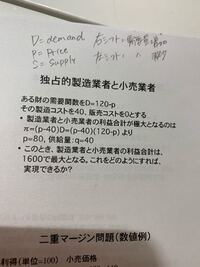 D= demand
P= Price
S= Supply
右シフト
左シフト
独占的製造業者と小売業者
ある財の需要関数をD=120-p
その製造コストを40、販売コストを0とする
・ 製造業者と小売業者の利益合計が極大となるのは
π=(p-40)D=(p-40)(120-p) より
p=80、供給量:q=40
・ このとき、製造業者と小売業者の利益合計は、
1600で最大となる。これをどのようにすれば、
実現できるか?
二重マージン問題(数値例)
利得(単位=100) 小売価格